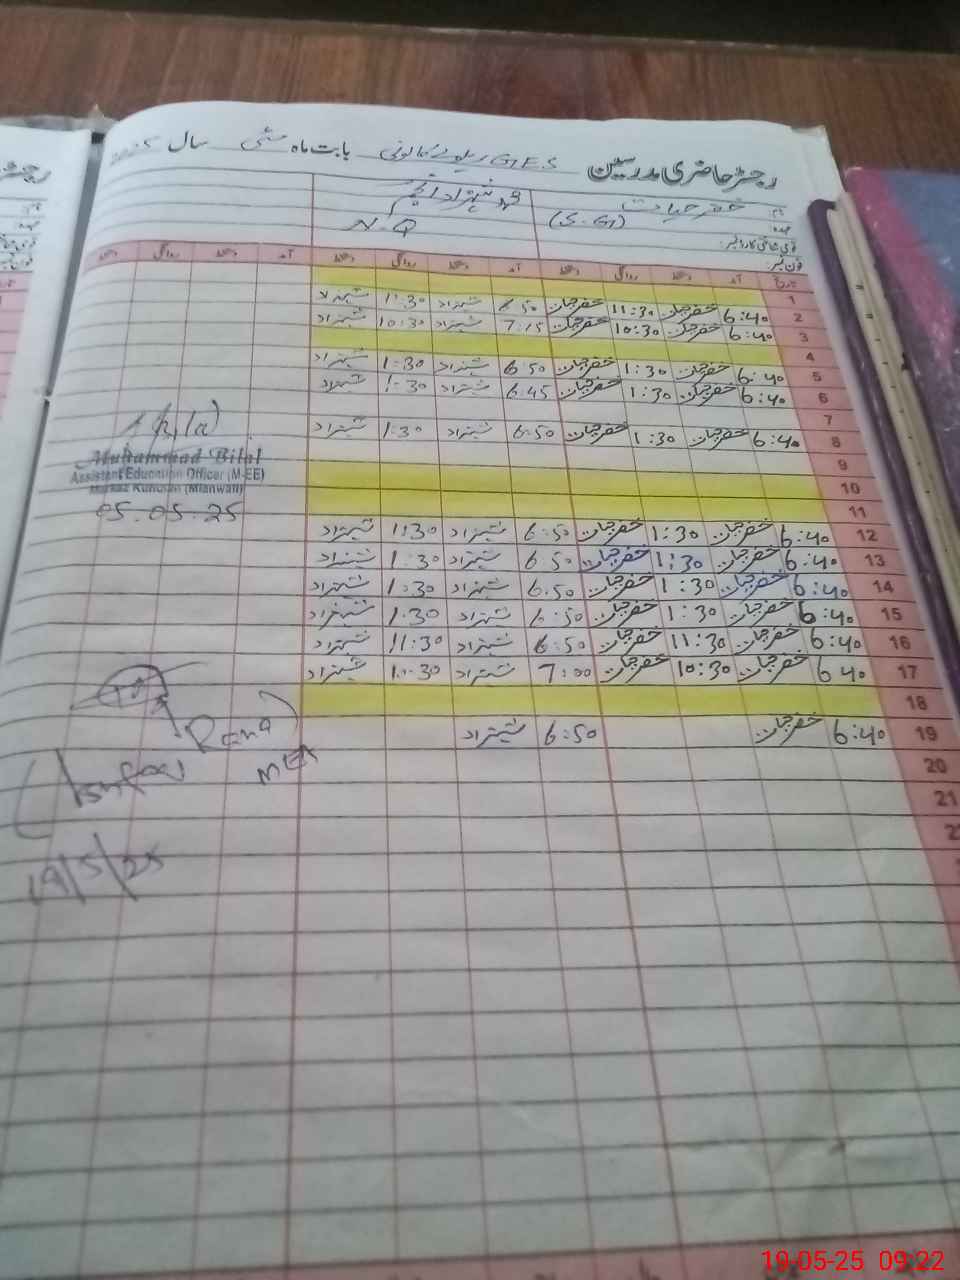 رجسٹر حاضری مدرسین G.E.S ریلوے کالونی بابت ماہ مئی سال 2025
نام خضر حیات محمد شہزاد انجم
عہدہ (S.G) N.Q
قومی شناختی کارڈ نمبر:
فون نمبر:
تاریخ آمد دستخط روانگی دستخط آمد دستخط روانگی دستخط آمد دستخط روانگی دستخط
1
2 6:40 خضر حیات 11:30 خضر حیات 6:50 شہزاد 11:30 شہزاد
3 6:40 خضر حیات 10:30 خضر حیات 7:15 شہزاد 10:30 شہزاد
4
5 6:40 خضر حیات 1:30 خضر حیات 6:50 شہزاد 1:30 شہزاد
6 6:40 خضر حیات 1:30 خضر حیات 6:45 شہزاد 1:30 شہزاد
7
8 6:40 خضر حیات 1:30 خضر حیات 6:50 شہزاد 1:30 شہزاد
9
10
11
12 6:40 خضر حیات 1:30 خضر حیات 6:50 شہزاد 1:30 شہزاد
13 6:40 خضر حیات 1:30 خضر حیات 6:50 شہزاد 1:30 شہزاد
14 6:40 خضر حیات 1:30 خضر حیات 6:50 شہزاد 1:30 شہزاد
15 6:40 خضر حیات 1:30 خضر حیات 6:50 شہزاد 1:30 شہزاد
16 6:40 خضر حیات 11:30 خضر حیات 6:50 شہزاد 11:30 شہزاد
17 6:40 خضر حیات 10:30 خضر حیات 7:00 شہزاد 10:30 شہزاد
18
19 6:40 خضر حیات 6:50 شہزاد
20
21
22
Muhammad Bilal
Assistant Education Officer (M-EE)
Markaz Kundian (Mianwali)
05.05.25
Rana
MEA
19/5/25
19-05-25 09:22